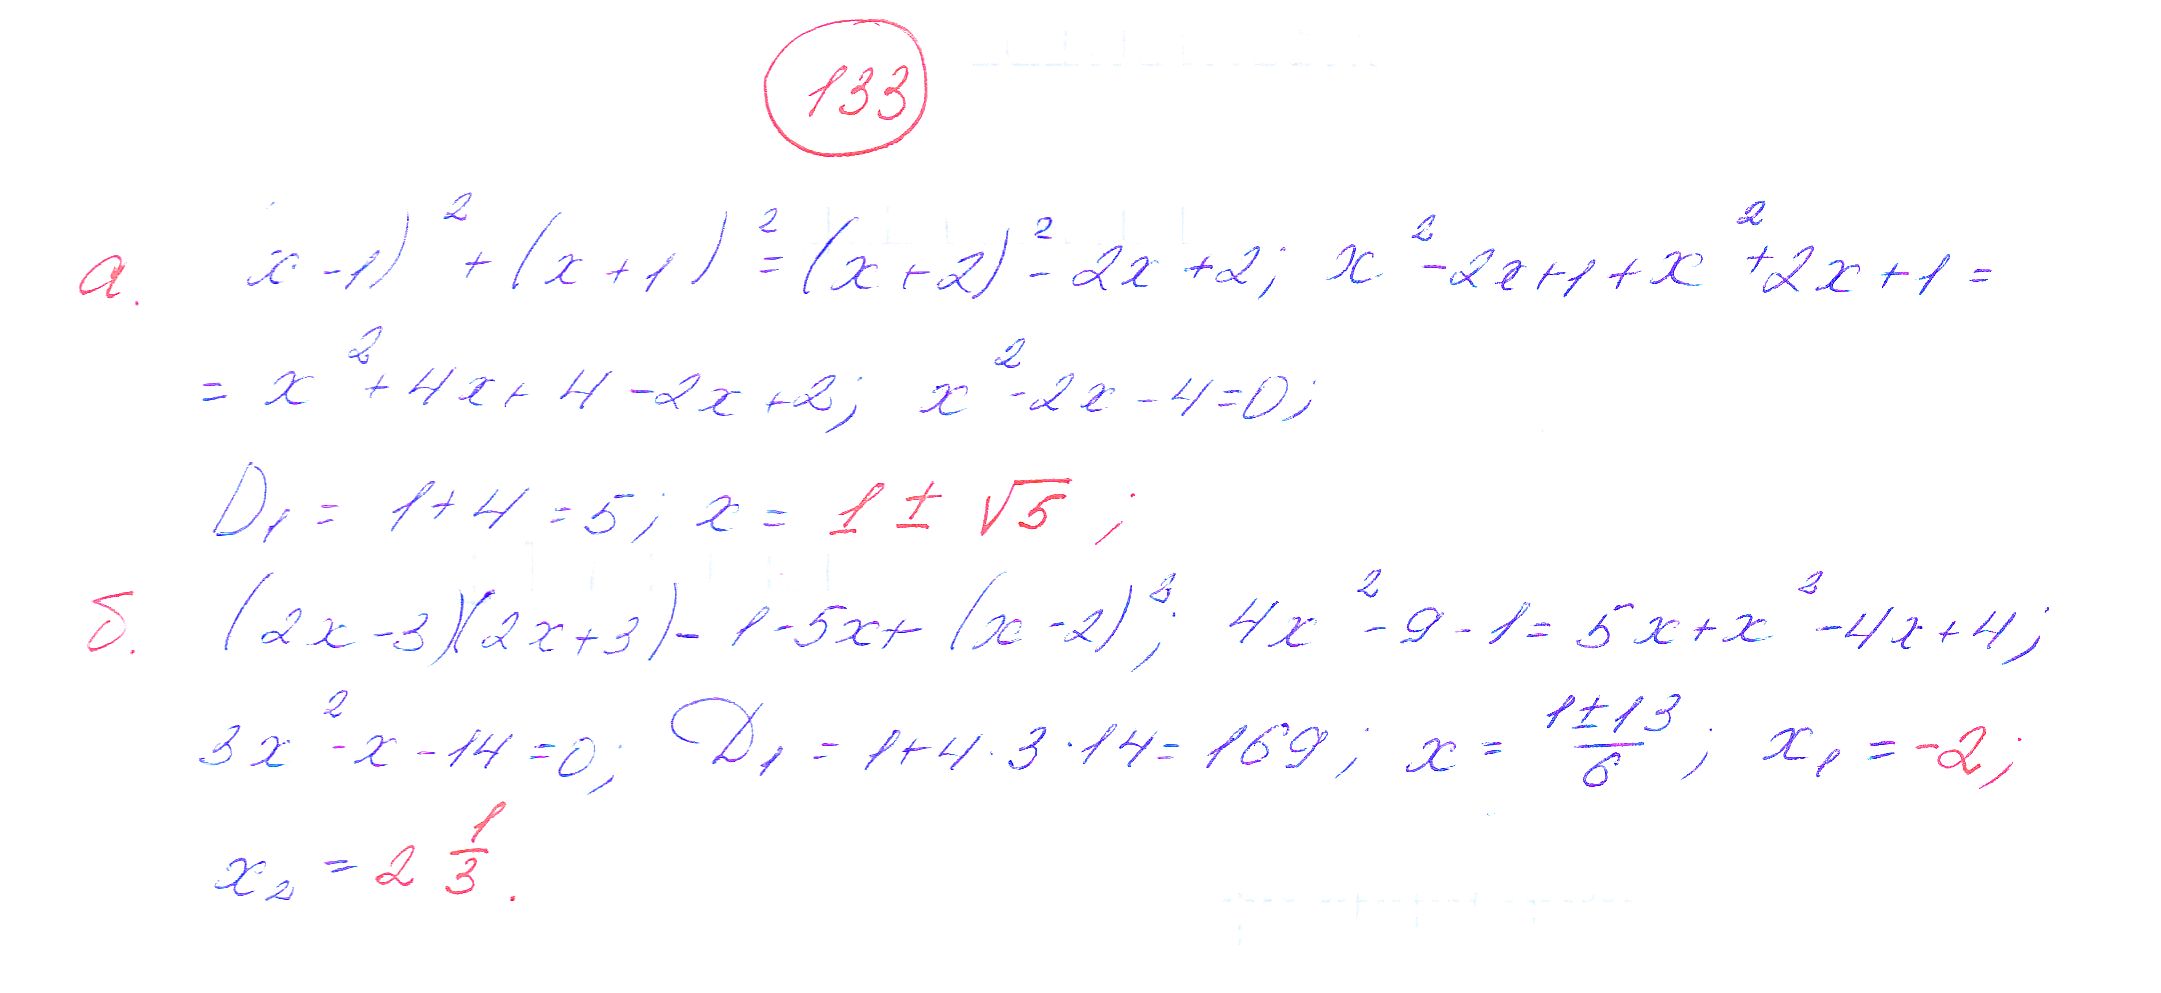 133
а. x-1)² + (x+1)² = (x+2)² - 2x +2; x² -2x+1+x² +2x+1 =
= x² + 4x + 4 -2x+2; x² -2x -4=0;
D₁ = 1+4 = 5; x = 1 ± √5 ;
б. (2x-3)(2x+3) - 1-5x+ (x-2)²; 4x² -9-1= 5x+x² -4x+4;
3x² -x -14=0; D₁ = 1+4·3·14=169; x = (1±13)/6; x₁ = -2;
x₂ = 2 1/3.